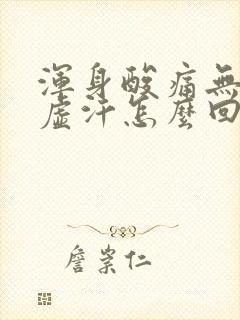 渾身酸痛無
虛汗怎麼回
詹崇仁